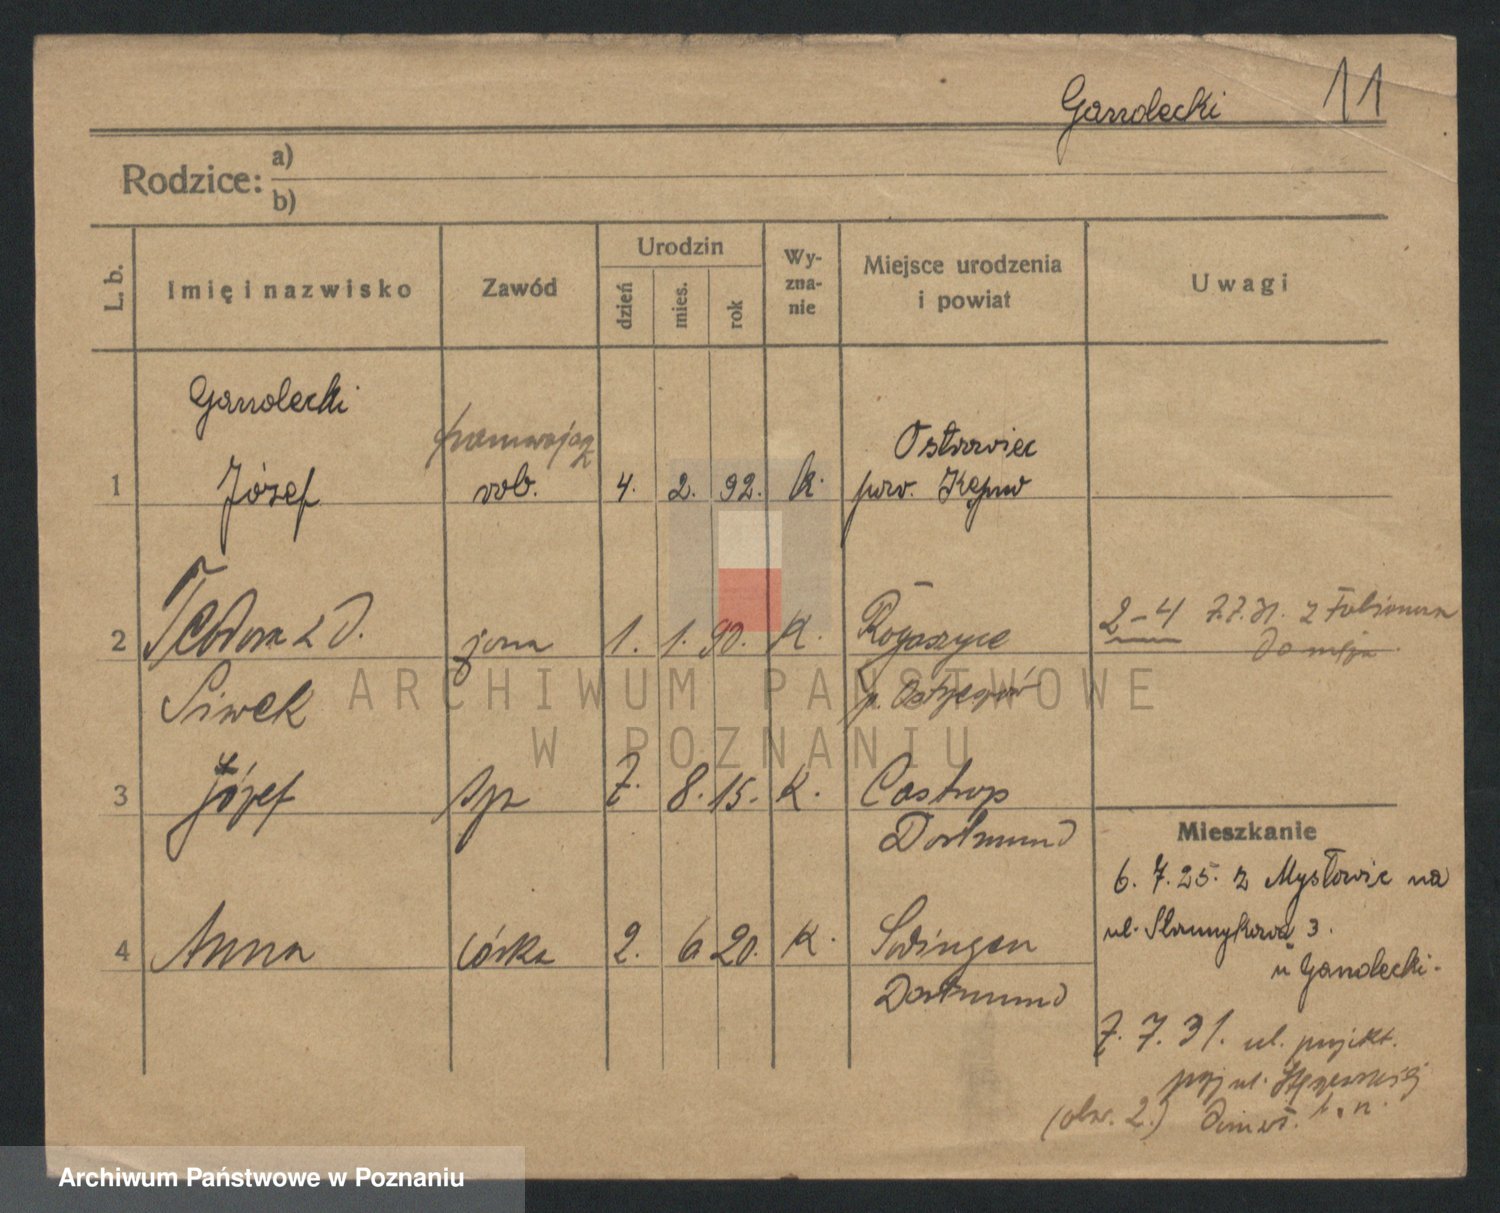 Garrolecki 11
Rodzice: a)
b)
L. b. Imię i nazwisko Zawód Urodzin dzień mies. rok Wy-zna-nie Miejsce urodzenia i powiat Uwagi
Garrolecki
Ostrowiec
1 Józef rob. 4. 2. 92. k. pow. Kępno
2 Teodora z d. żona 1. 1. 90. K. Rogaszyce 2-4 7.7.31. z
Siwek p. Ostrzeszów
3 Józef syn 7. 8. 15. K. Castrop
Dortmund
Mieszkanie
6. 7. 25. z Mysłowic na
4 Anna córka 2. 6 20. K. Sodingen ul. 3.
u Garrolecki.
Dortmund
7. 7. 31. ul. projekt.
przy ul.
(obw. 2.)
ARCHIWUM PAŃSTWOWE
W POZNANIU
Archiwum Państwowe w Poznaniu